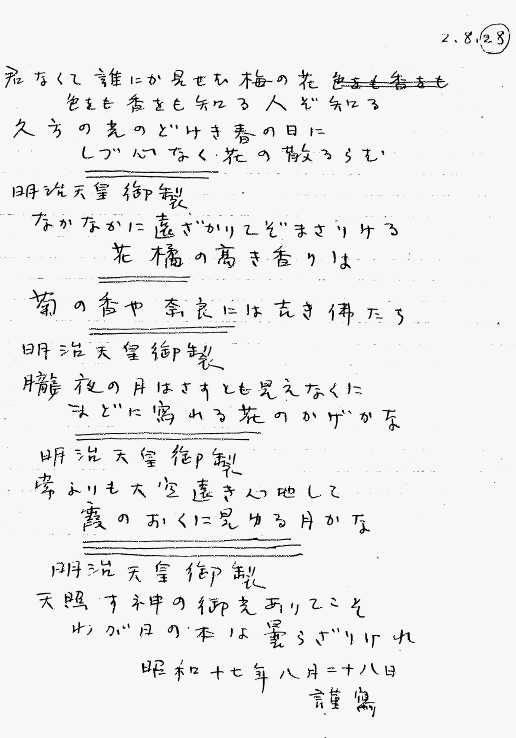 2.8.28
君なくて誰にか見せむ梅の花 色をも香をも
色をも香をも知る人ぞ知る
久方の光のどけき春の日に
しづ心なく花の散るらむ
明治天皇御製
なかなかに遠ざかりてぞまさりける
花橘の高き香りは
菊の香や奈良には古き佛たち
明治天皇御製
朧夜の月はさすとも見えなくに
まどに寫れる花のかげかな
明治天皇御製
常よりも大空遠き心地して
霞のおくに見ゆる月かな
明治天皇御製
天照す神の御光ありてこそ
わが日の本は曇らざりけれ
昭和十七年八月二十八日
謹寫